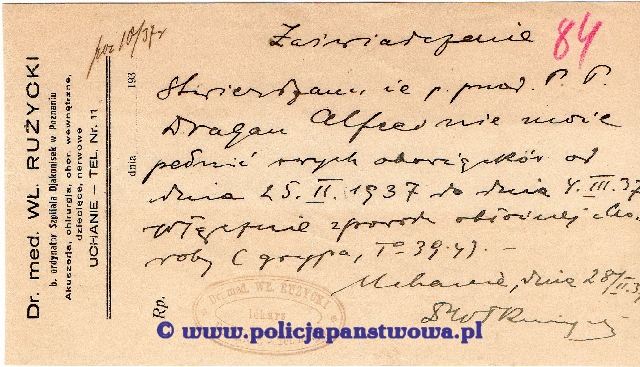 Dr. med. WŁ. RUŻYCKI
b. ordynator Szpitala Djakonisek w Poznaniu
Akuszerja, chirurgja, chor. wewnętrzne,
dziecięce, nerwowe
UCHANIE — TEL. Nr. 11
dnia 193
Rp.
10/37
Zaświadczenie
84
Stwierdzam, że p. przod. P. P.
Dragan Alfred nie może
pełnić swych obowiązków od
dnia 25. II. 1937 do dnia 4. III. 37
włącznie z powodu obłożnej cho-
roby (grypa, T° 39.4). —
Uchanie, dnia 28/II.3
Dr. med. WŁ. RUŻYCKI
lekarz
© www.policjapanstwowa.pl